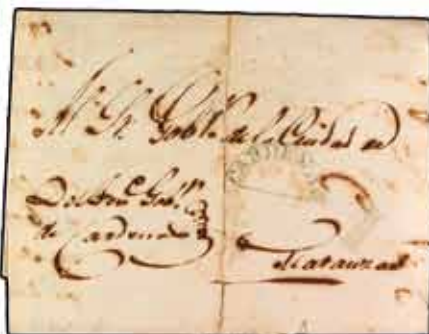 Al Sr. Gob.or de la Ciudad de
Del Ten.e Gob.r
de Cardenas
Matanzas